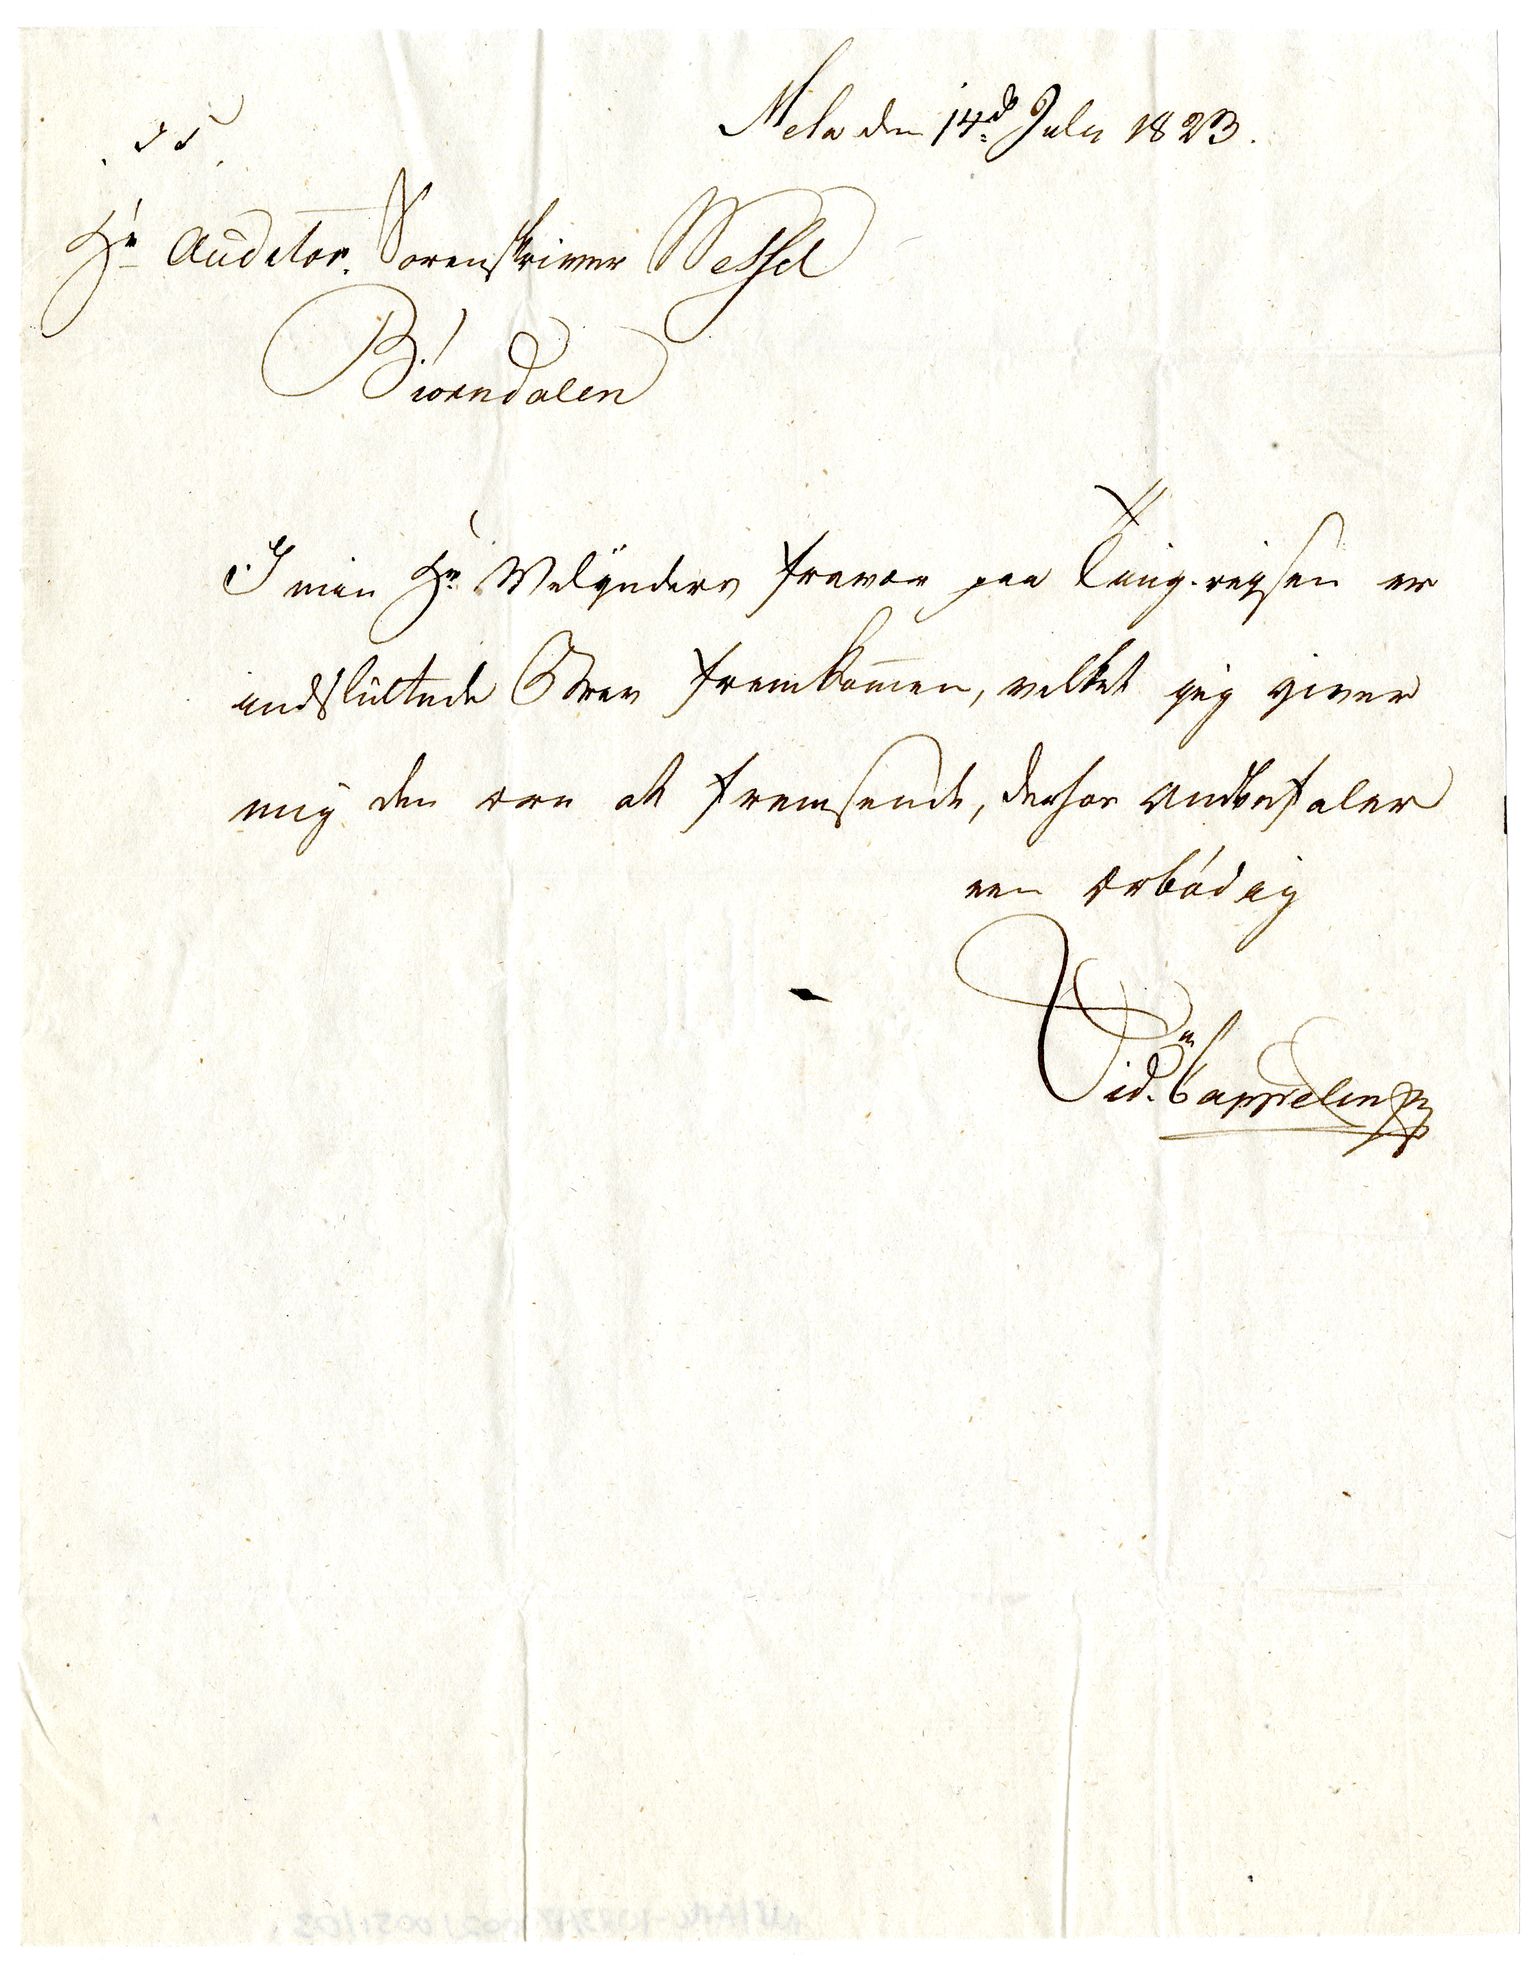 Mela den 14d July 1823.
S. T.
Hr Auditor. Sorenskriver Wessel
Biorndalen
I min Hr Welynders fravær paa Ting-reisen er
indsluttede Brev fremkommen, velket jeg giver
mig den ære at fremsende, derfor andbefaler
een ærbødig
Did. Cappelen